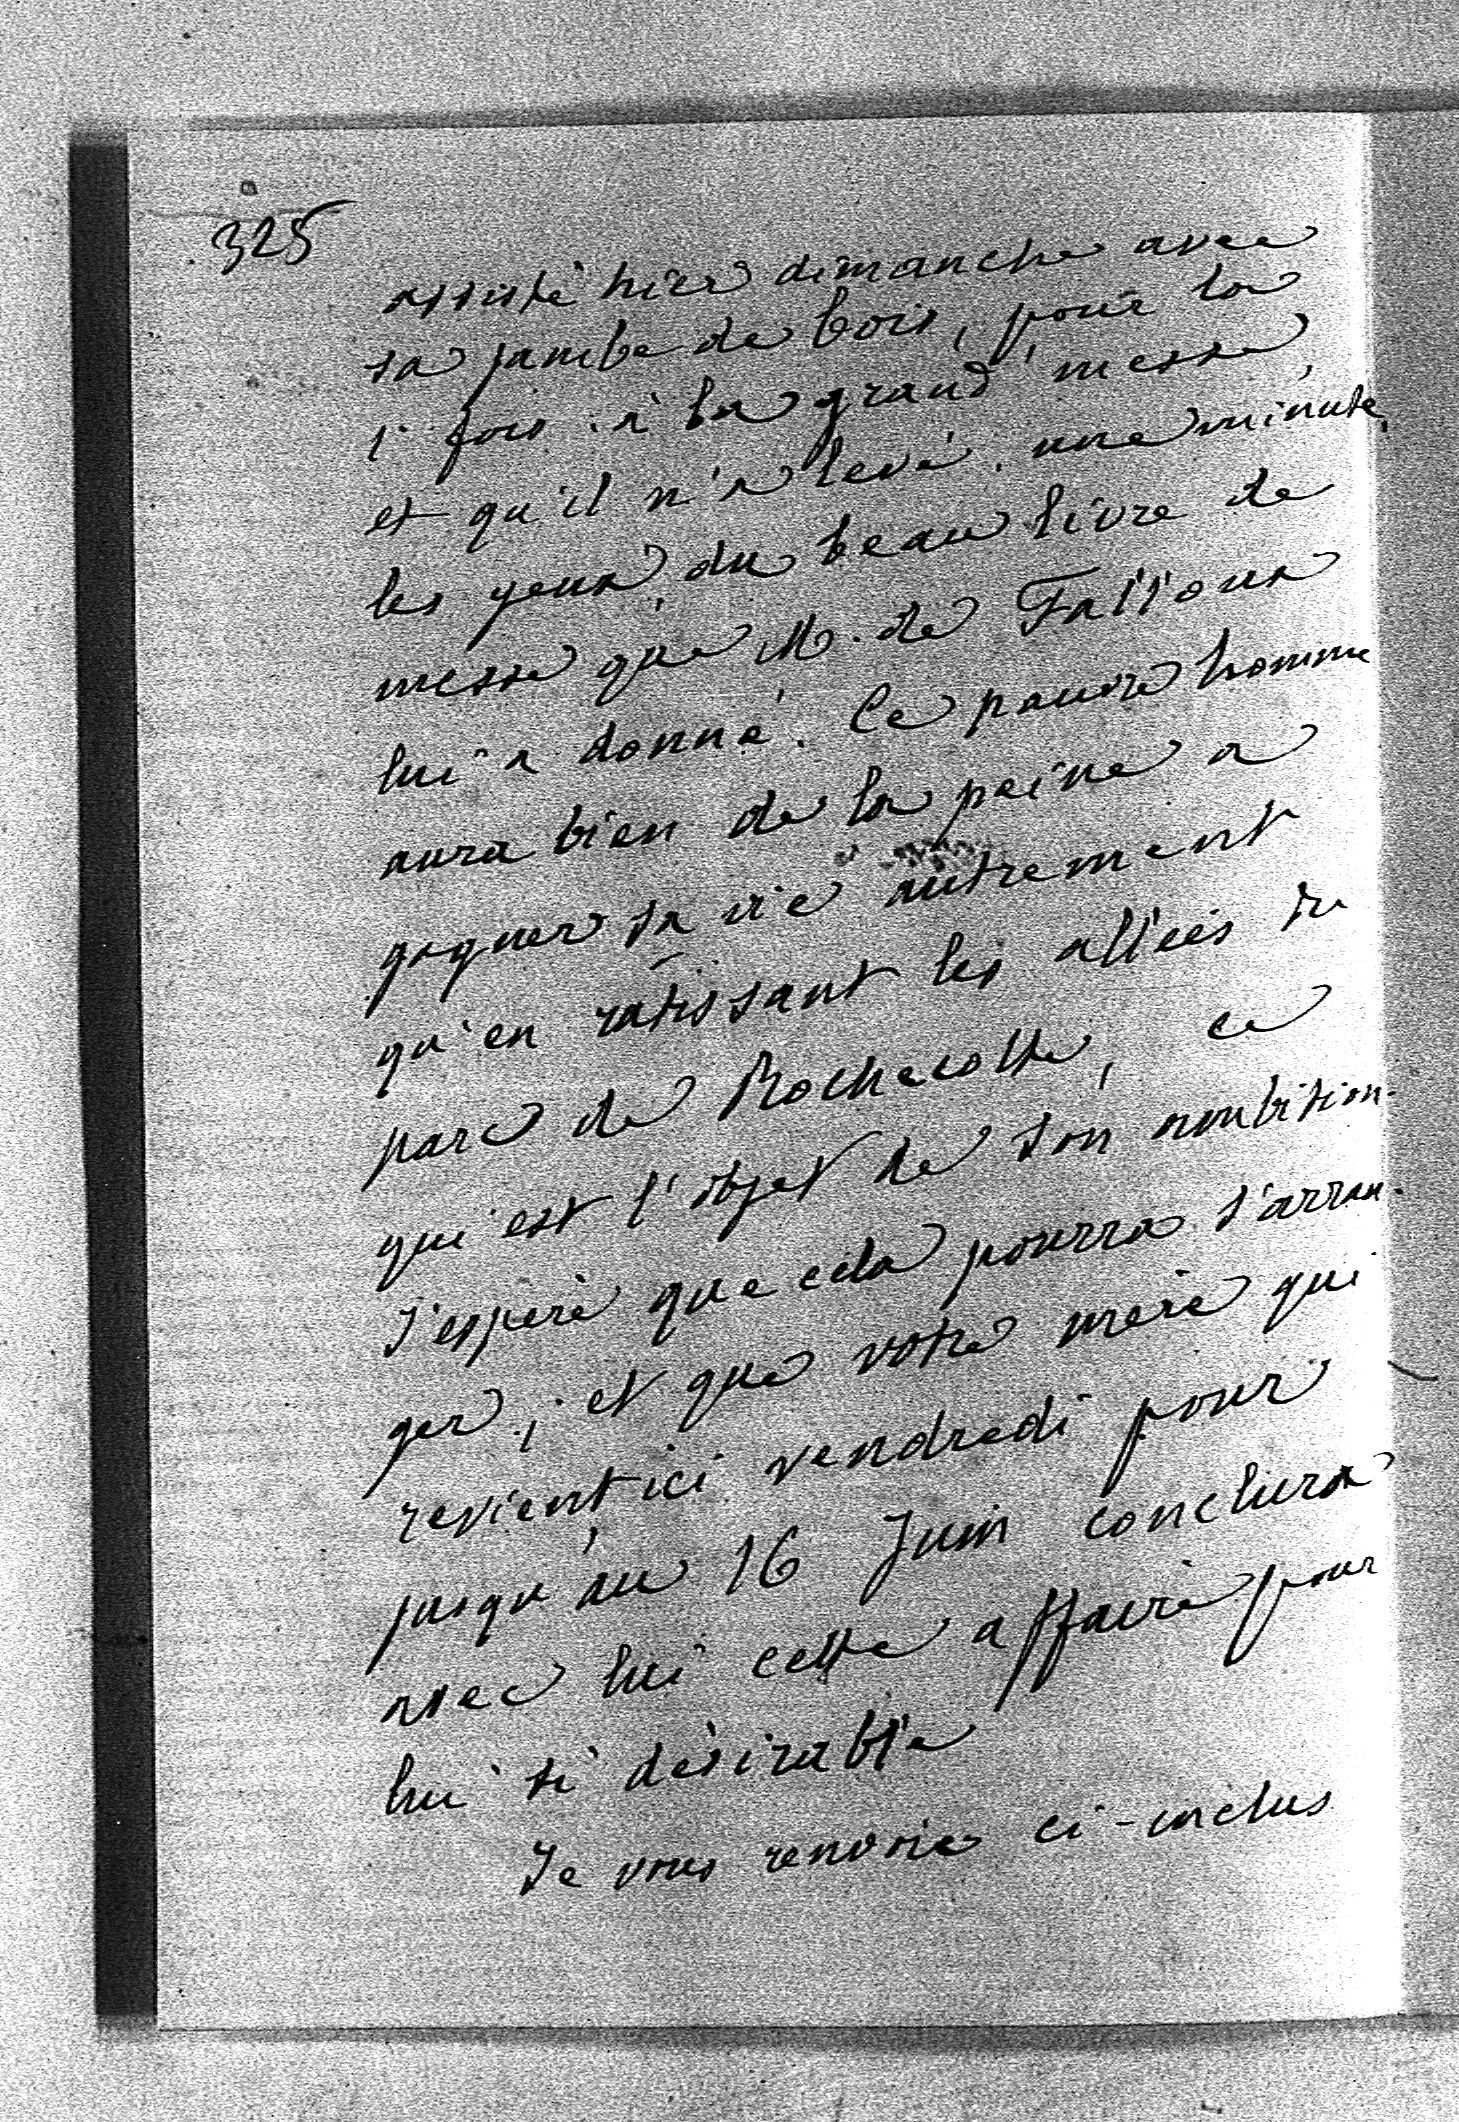 325
assisté hier dimanche avec
sa jambe de bois, pour la
1e fois à la grand'messe,
et qu'il n'a levé une minute
les yeux du beau livre de
messe que M. de Falloux
lui a donné. Ce pauvre homme
aura bien de la peine a
gagner sa vie autrement
qu'en ratissant les allées du
parc de Rochecotte, ce
qui est l'objet de son ambition.
J'espère que cela pourra s'arran-
ger; et que votre mère qui
revient ici vendredi pour
jusqu'au 16 Juin conclura
avec lui cette affaire pour
lui si désirable
Je vous renvoie ci-inclus